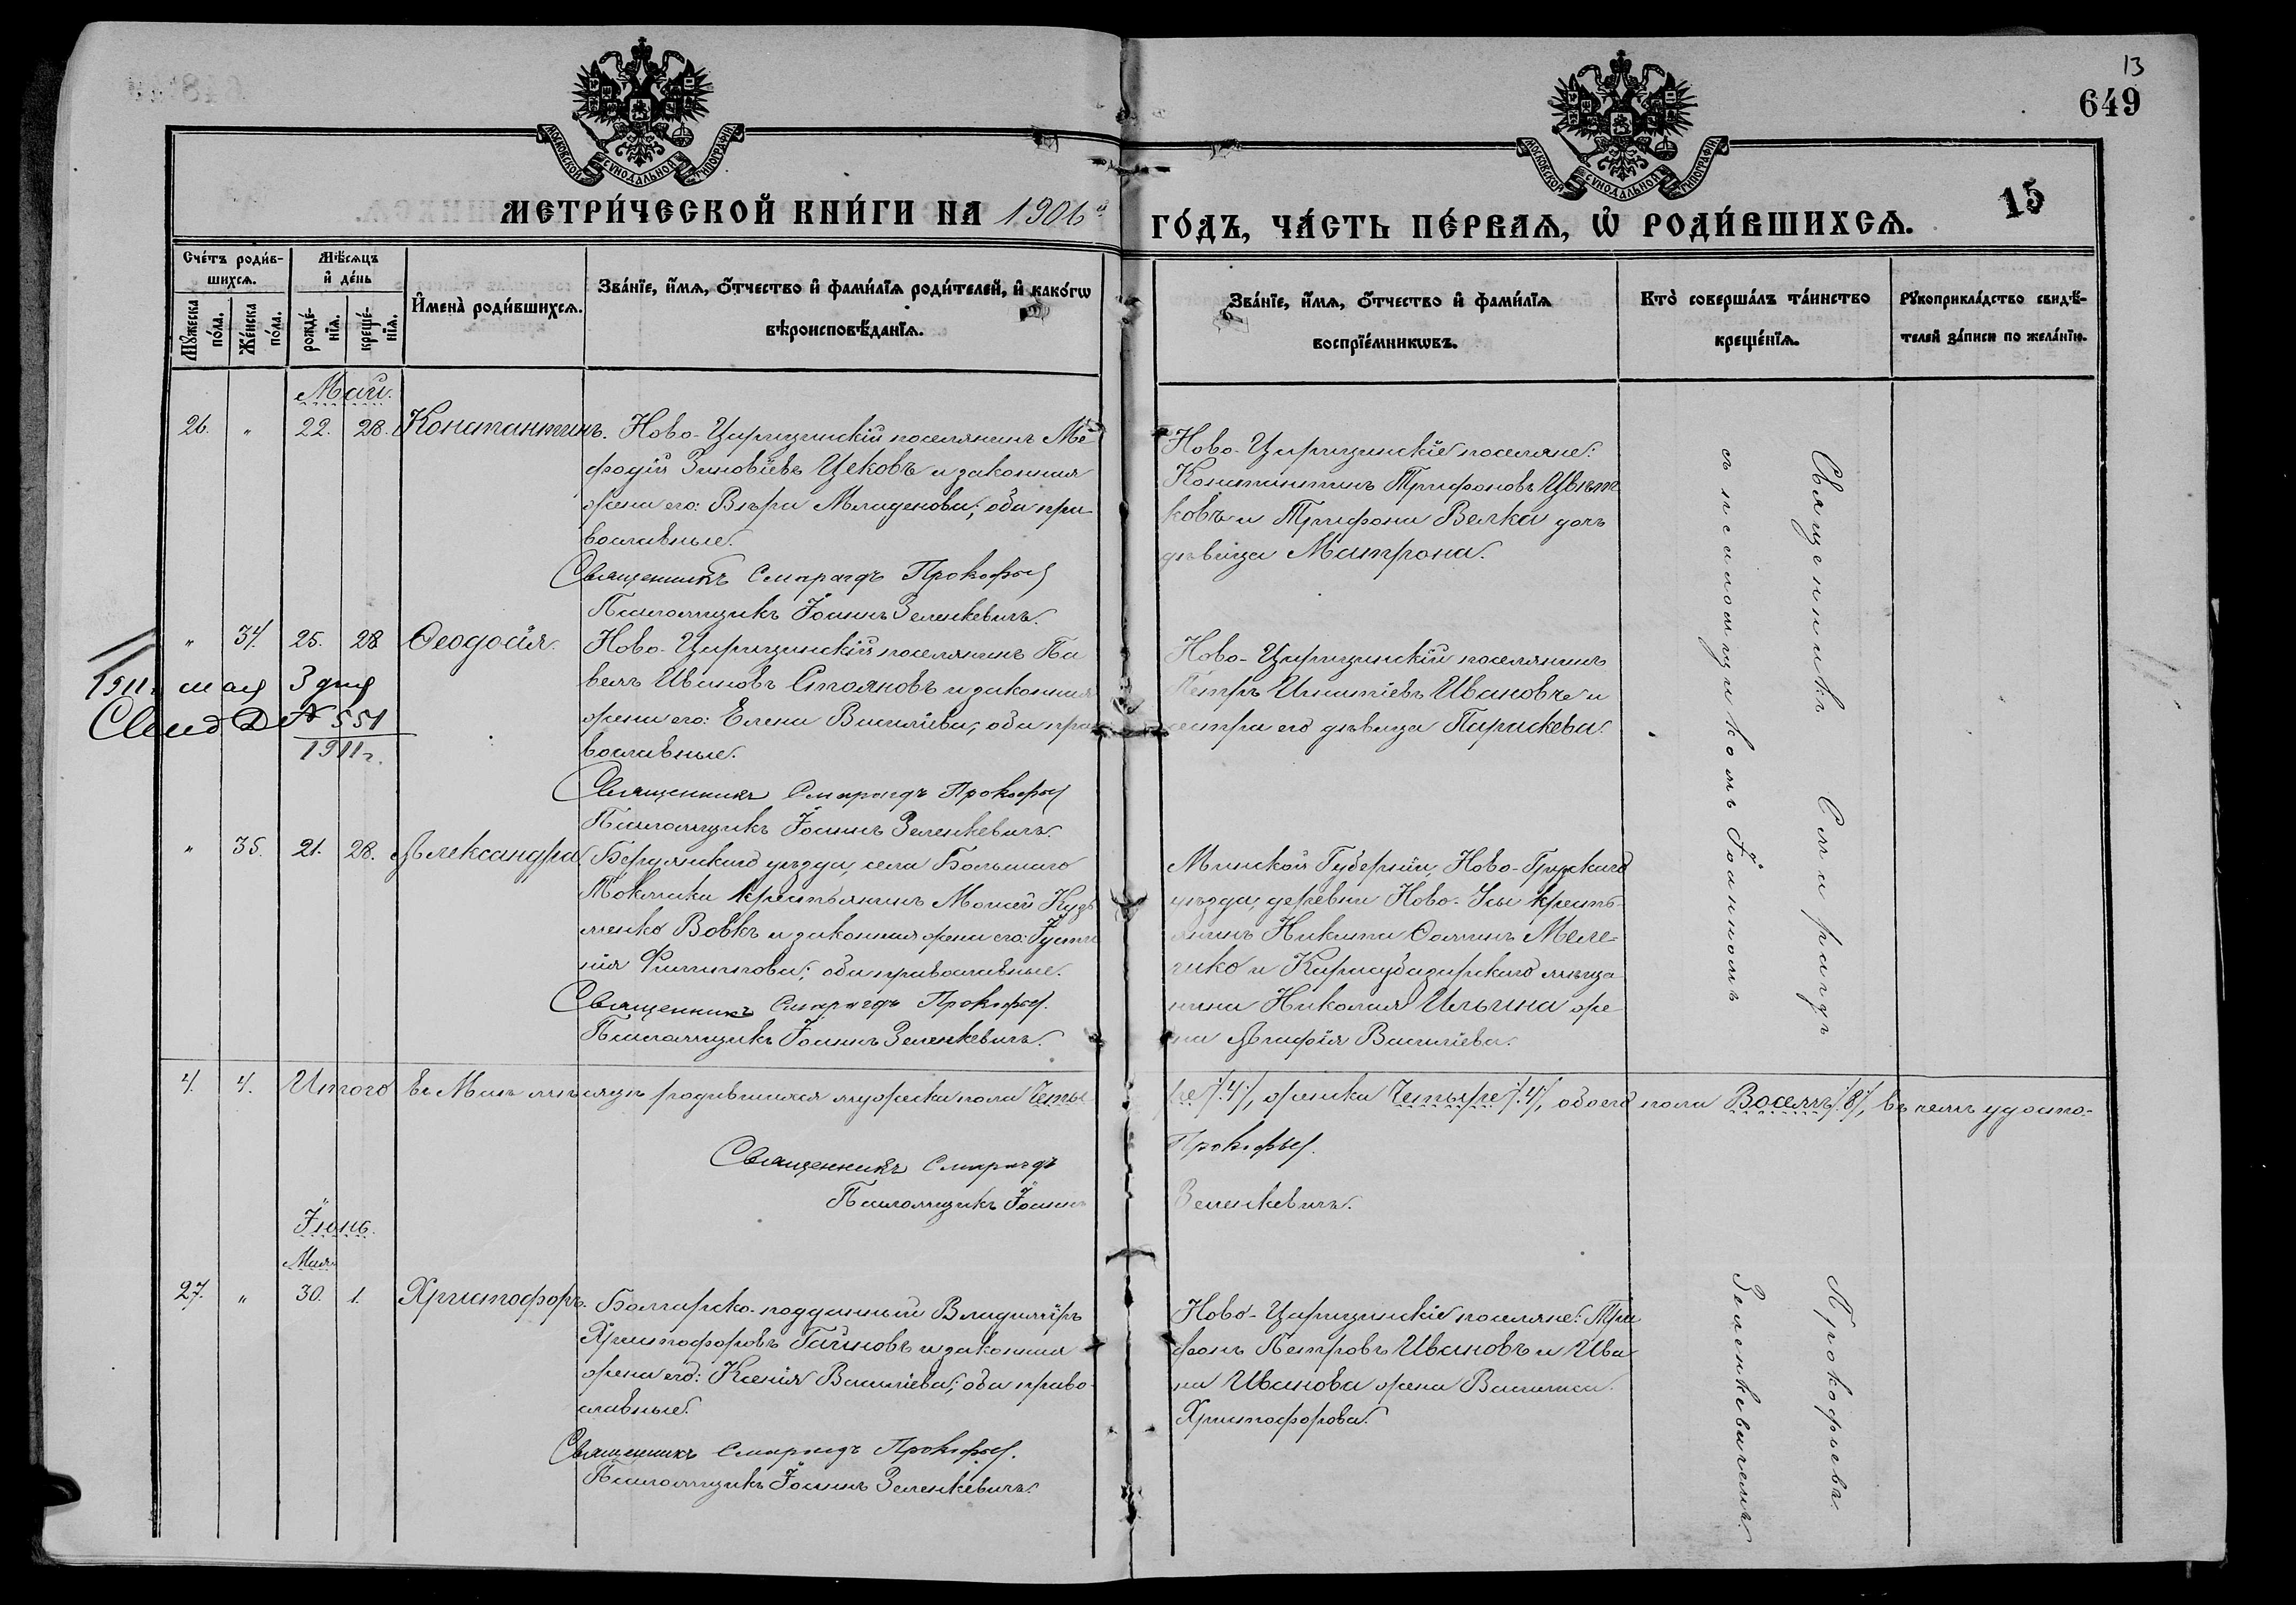 13
649
15
МОСКОВСКОЙ СѴНОДАЛЬНОЙ ТИПОГРАФІИ
МОСКОВСКОЙ СѴНОДАЛЬНОЙ ТИПОГРАФІИ
МЕТРИ́ЧЕСКОЙ КНИ́ГИ НА 1906й
ГО́ДЪ, ЧА́СТЬ ПЕ́РВАѦ, Ѡ҆ РОДИ́ВШИХСѦ.
Сче́тъ роди́в-
шихсѧ.
Мꙋ́жеска
по́ла.
Же́нска
по́ла.
Мѣ́сѧцъ
и҆ де́нь
рожде́-
нїѧ.
креще́-
нїѧ.
И҆мена̀ роди́вшихсѧ.
Зва́нїе, и҆́мѧ, о҆́тчество и҆ фами́лїѧ роди́телей, и҆ како́гѡ
вѣроисповѣ́данїѧ.
Зва́нїе, и҆́мѧ, о҆́тчество и҆ фами́лїѧ
воспрїе́мникѡвъ.
Кто̀ соверша́лъ та́инство
креще́нїѧ.
Рꙋкоприкла́дство свидѣ́-
телей за́писи по жела́нїю.
Май.
26. " 22. 28. Константинъ. Ново-Царицинскій поселянинъ Ме
фодій Зиновіевъ Цековъ и законная
жена его: Вѣра Младенова; оба пра
вославные.
Священникъ Смарагдъ Прокофьев
Псаломщикъ Іоаннъ Зеленкевичъ.
Ново-Царицинскіе поселяне:
Константинъ Трифоновъ Цвѣт
ковъ и Трифона Велка дочь
дѣвица Матрона.
" 34. 25. 28 Ѳеодосія. Ново-Царицинскій поселянинъ Па
велъ Ивановъ Стояновъ и законная
жена его: Елена Василіева; оба пра
вославные.
Священникъ Смарагдъ Прокофьев
Псаломщикъ Іоаннъ Зеленкевичъ.
1911г. мая 3 дня
№ 551
1911г.
Ново-Царицинскій поселянинъ
Петръ Игнатіевъ Ивановъ и
сестра его дѣвица Параскева.
" 35. 21. 28. Александра Бердянскаго уѣзда, села Большаго
Токмака крестьянинъ Моисей Кузь
менко Вовкъ и законная жена его: Іусти
нія Филиппова; оба православные.
Священникъ Смарагдъ Прокофьев.
Псаломщикъ Іоаннъ Зеленкевичъ.
Минской Губерніи, Ново-Грускаго
уѣзда, деревни Ново-Усы кресть-
янинъ Никита Ѳоминъ Меле-
шко и Карасубазарскаго мѣща
нина Николая Ильина же
на Агафія Василіева.
Священникъ Смарагдъ
съ псаломщикомъ Іоанномъ
4. 4. Итого въ Маѣ мѣсяцѣ родившихся мужеска пола Четы
ре /4/, женска Четыре /4/, обоего пола Восемь /8/, въ чемъ удосто-
Священникъ Смарагдъ
Прокофьев.
Псаломщикъ Іоаннъ
Зеленкевичъ.
Іюнь.
Мая
27. " 30. 1. Христофоръ. Болгарско-подданный Владиміръ
Христофоровъ Гайновъ и законная
жена его: Ксенія Василіева; оба право-
славные.
Священникъ Смарагдъ Прокофьев.
Псаломщикъ Іоаннъ Зеленкевичъ.
Ново-Царицинскіе поселяне: Три
фонъ Петровъ Ивановъ и Ива
на Иванова жена Василиса
Христофорова.
Прокофьевъ
Зеленкевичемъ.